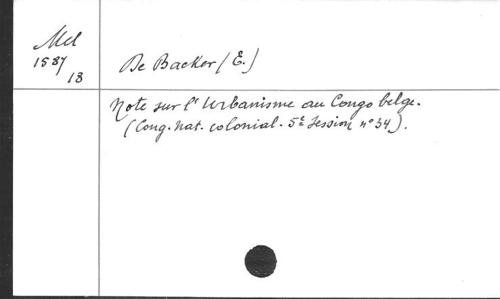 Mel
1587
18
De Backer (E.)
Note sur l'Urbanisme au Congo belge.
(Cong. nat. colonial. 5e Session n° 34).